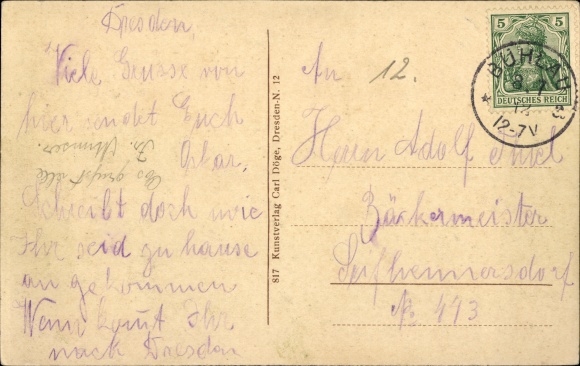 Dresden,
Viele Grüsse von
hier sendet Euch
Oskar.
Es grüßt alle
Schreibt doch wie
Ihr seid zu hause
an gekommen
Wann komt Ihr
nach Dresden
817 Kunstverlag Carl Döge, Dresden-N. 12
5 5
DEUTSCHES REICH
BÜHLAU
12-7V
An 12.
Herrn Adolf
Bäckermeister
Seifhennersdorf
No 443